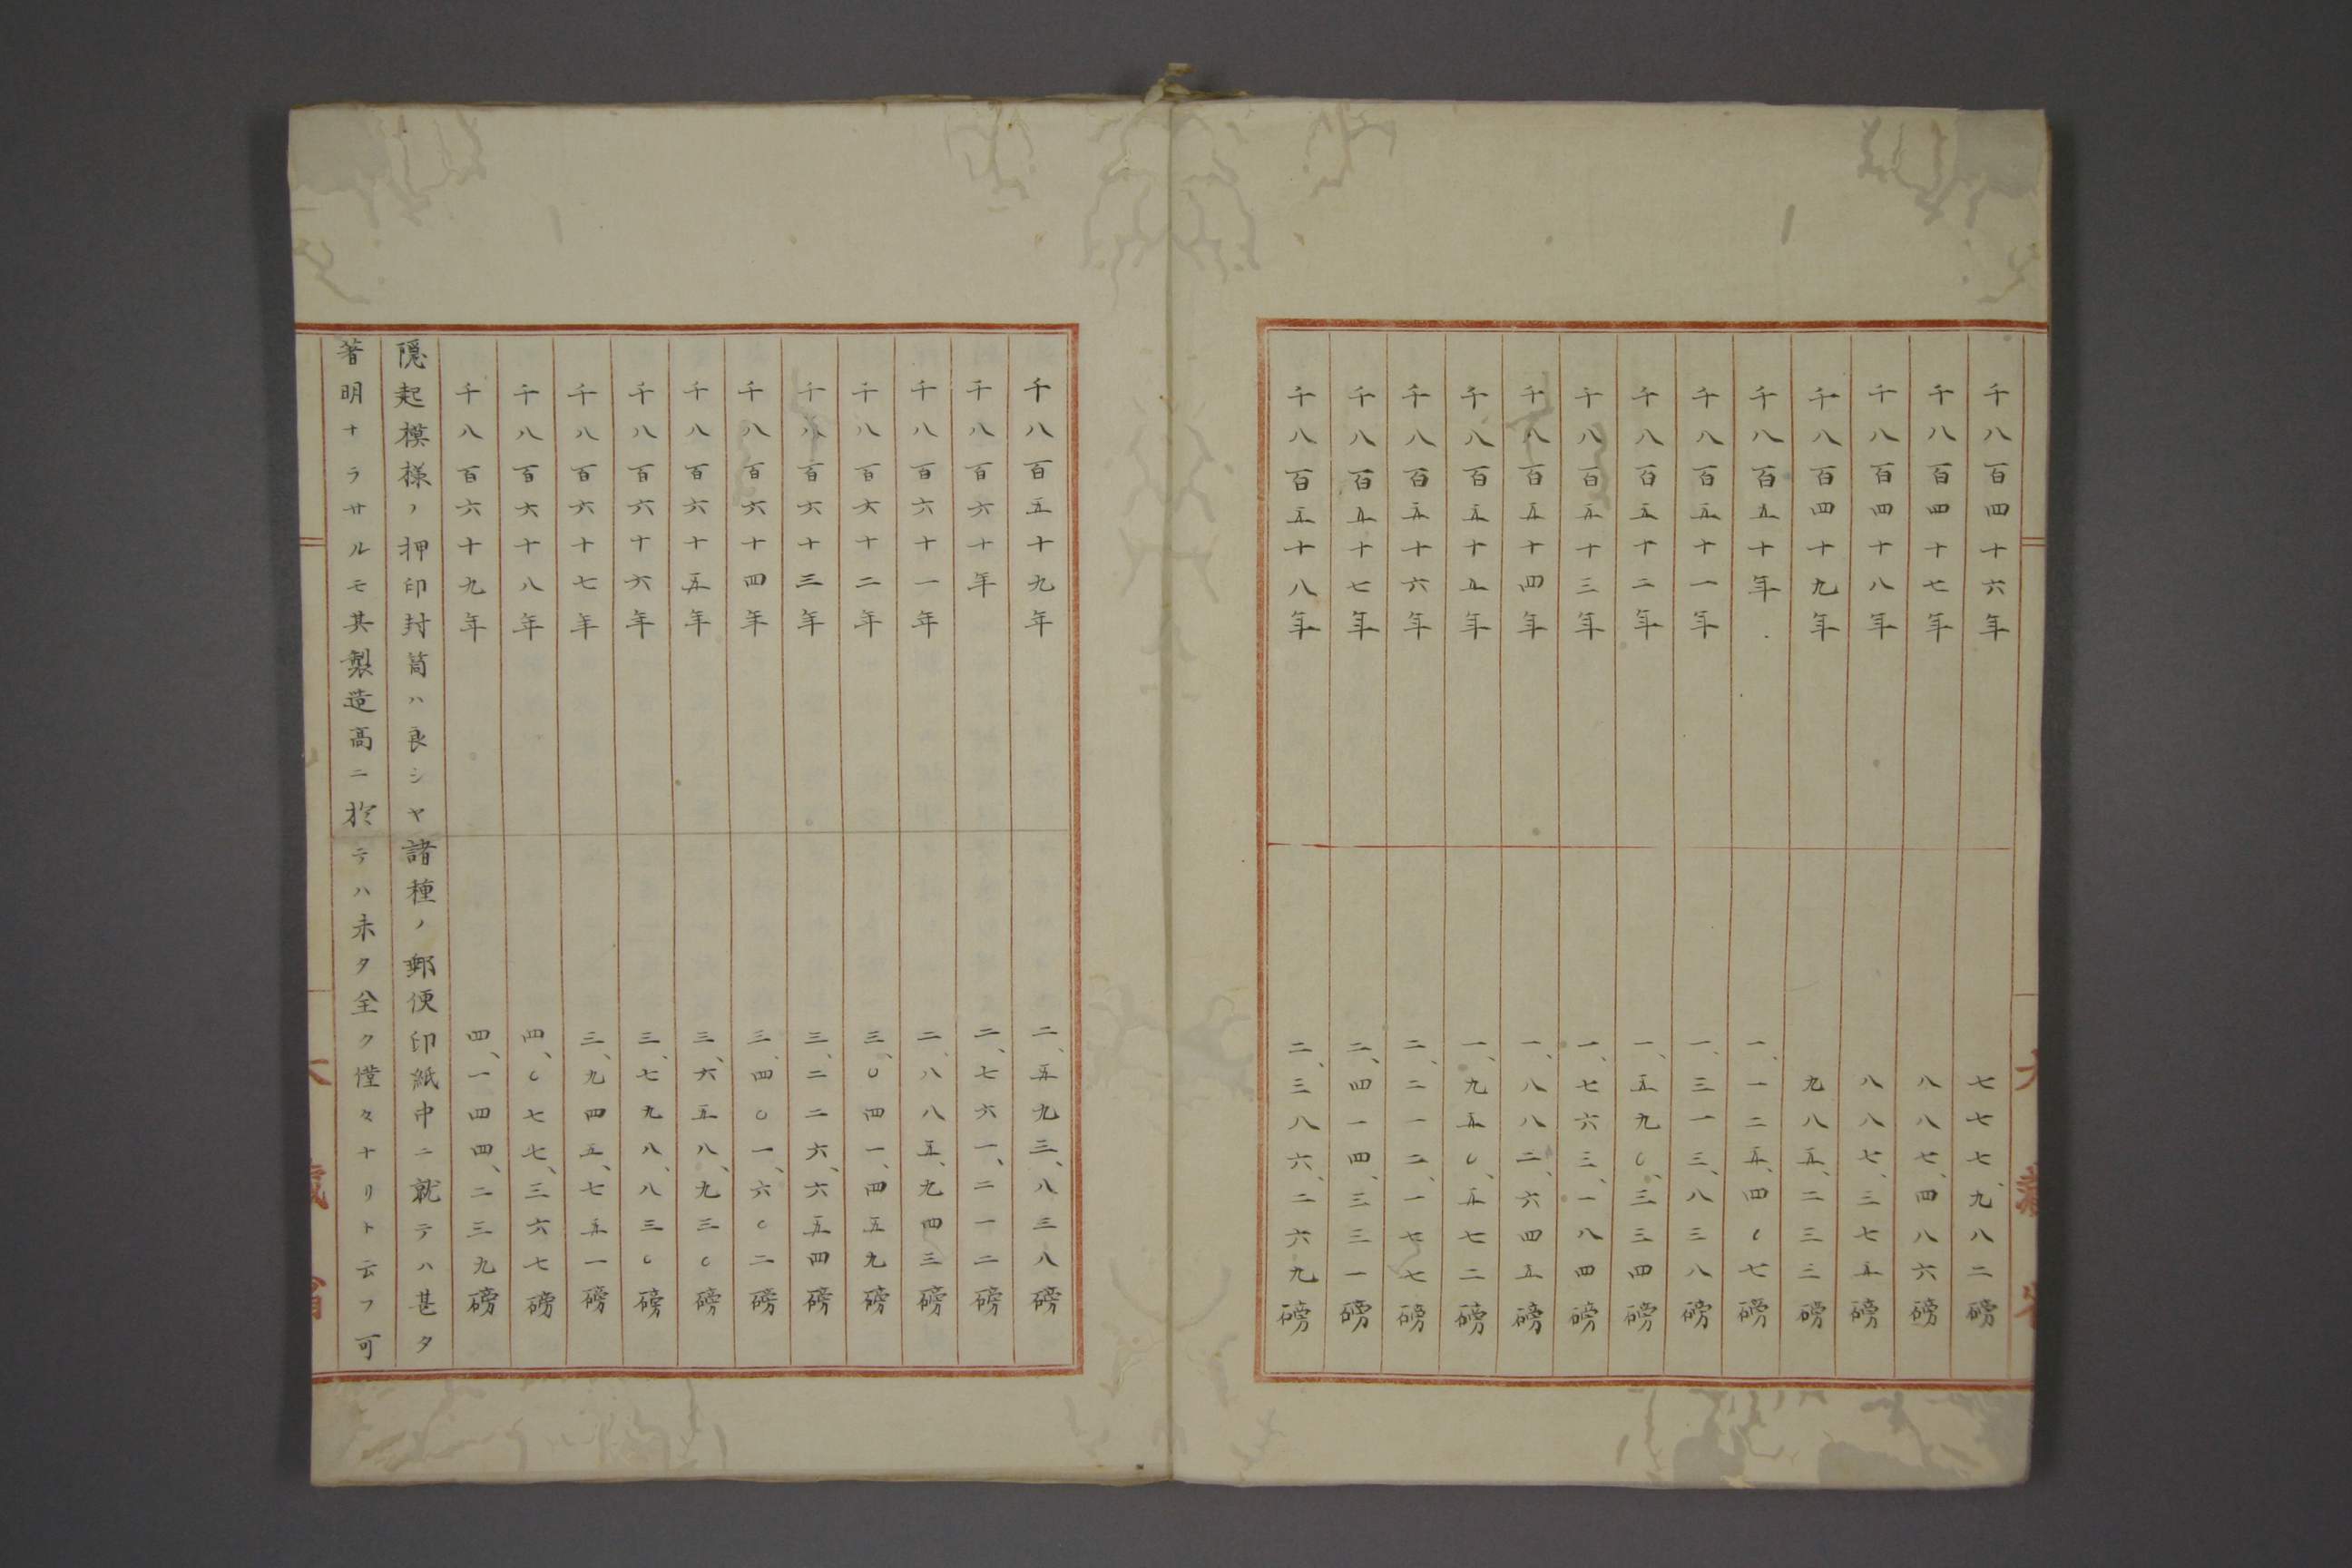 千八百四十六年 七七七、九八二磅
千八百四十七年 八八七、四八六磅
千八百四十八年 八八七、三七五磅
千八百四十九年 九八五、二三三磅
千八百五十年 一、一二五、四〇七磅
千八百五十一年 一、三一三、八三八磅
千八百五十二年 一、五九〇、三三四磅
千八百五十三年 一、七六三、一八四磅
千八百五十四年 一、八八二、六四五磅
千八百五十五年 一、九五〇、五七二磅
千八百五十六年 二、二一二、一七七磅
千八百五十七年 二、四一四、三三一磅
千八百五十八年 二、三八六、二六九磅
千八百五十九年 二、五九三、八三八磅
千八百六十年 二、七六一、二一二磅
千八百六十一年 二、八八五、九四三磅
千八百六十二年 三、〇四一、四五九磅
千八百六十三年 三、二二六、六五四磅
千八百六十四年 三、四〇一、六〇二磅
千八百六十五年 三、六五八、九三〇磅
千八百六十六年 三、七九八、八三〇磅
千八百六十七年 三、九四五、七五一磅
千八百六十八年 四、〇七七、三六七磅
千八百六十九年 四、一四四、二三九磅
隠起模様ノ押印封筒ハ良シヤ諸種ノ郵便印紙中ニ就テハ甚タ
著明ナラサルモ其製造高ニ於テハ未タ全ク慥々ナリト云フ可